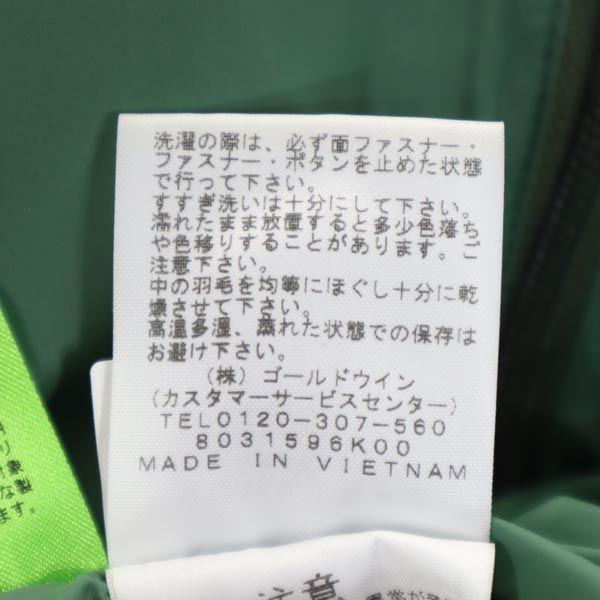 洗濯の際は、必ず面ファスナー・
ファスナー・ボタンを止めた状態
で行って下さい。
すすぎ洗いは十分にして下さい。
濡れたまま放置すると多少色落ち
や色移りすることがあります。ご
注意下さい。
中の羽毛を均等にほぐし十分に乾
燥させて下さい。
高温多湿、蒸れた状態での保存は
お避け下さい。
(株)ゴールドウイン
(カスタマーサービスセンター)
TEL0120-307-560
8031596K00
MADE IN VIETNAM
り
象
な製
ます。
注意